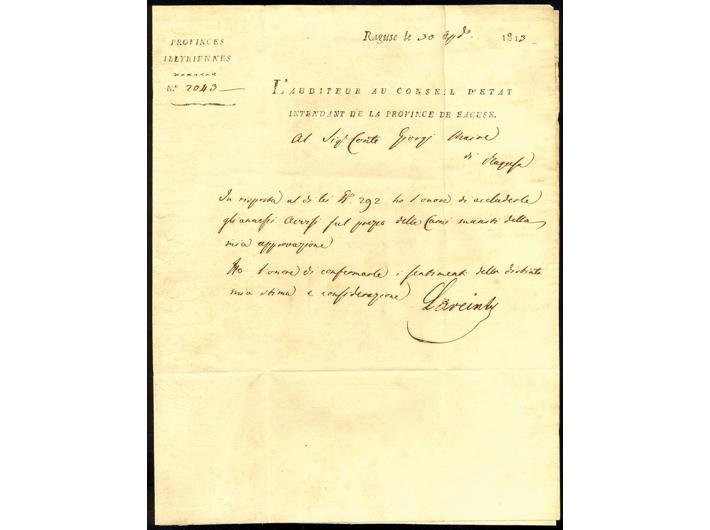 Raguse le 30 1813
PROVINCES
ILLYRIENNES
N.º 2043
L'AUDITEUR AU CONSEIL D'ETAT
INTENDANT DE LA PROVINCE DE RAGUSE.
Al Sigr Conte Giorgi Maire
di Ragusa
In risposta al di lei N.º 292 ho l'onore di accluderle
gli annessi Avvisi sul prezzo delle Carni muniti della
mia approvazione
Ho l'onore di confermarle i sentimenti della distinta
mia stima e considerazione